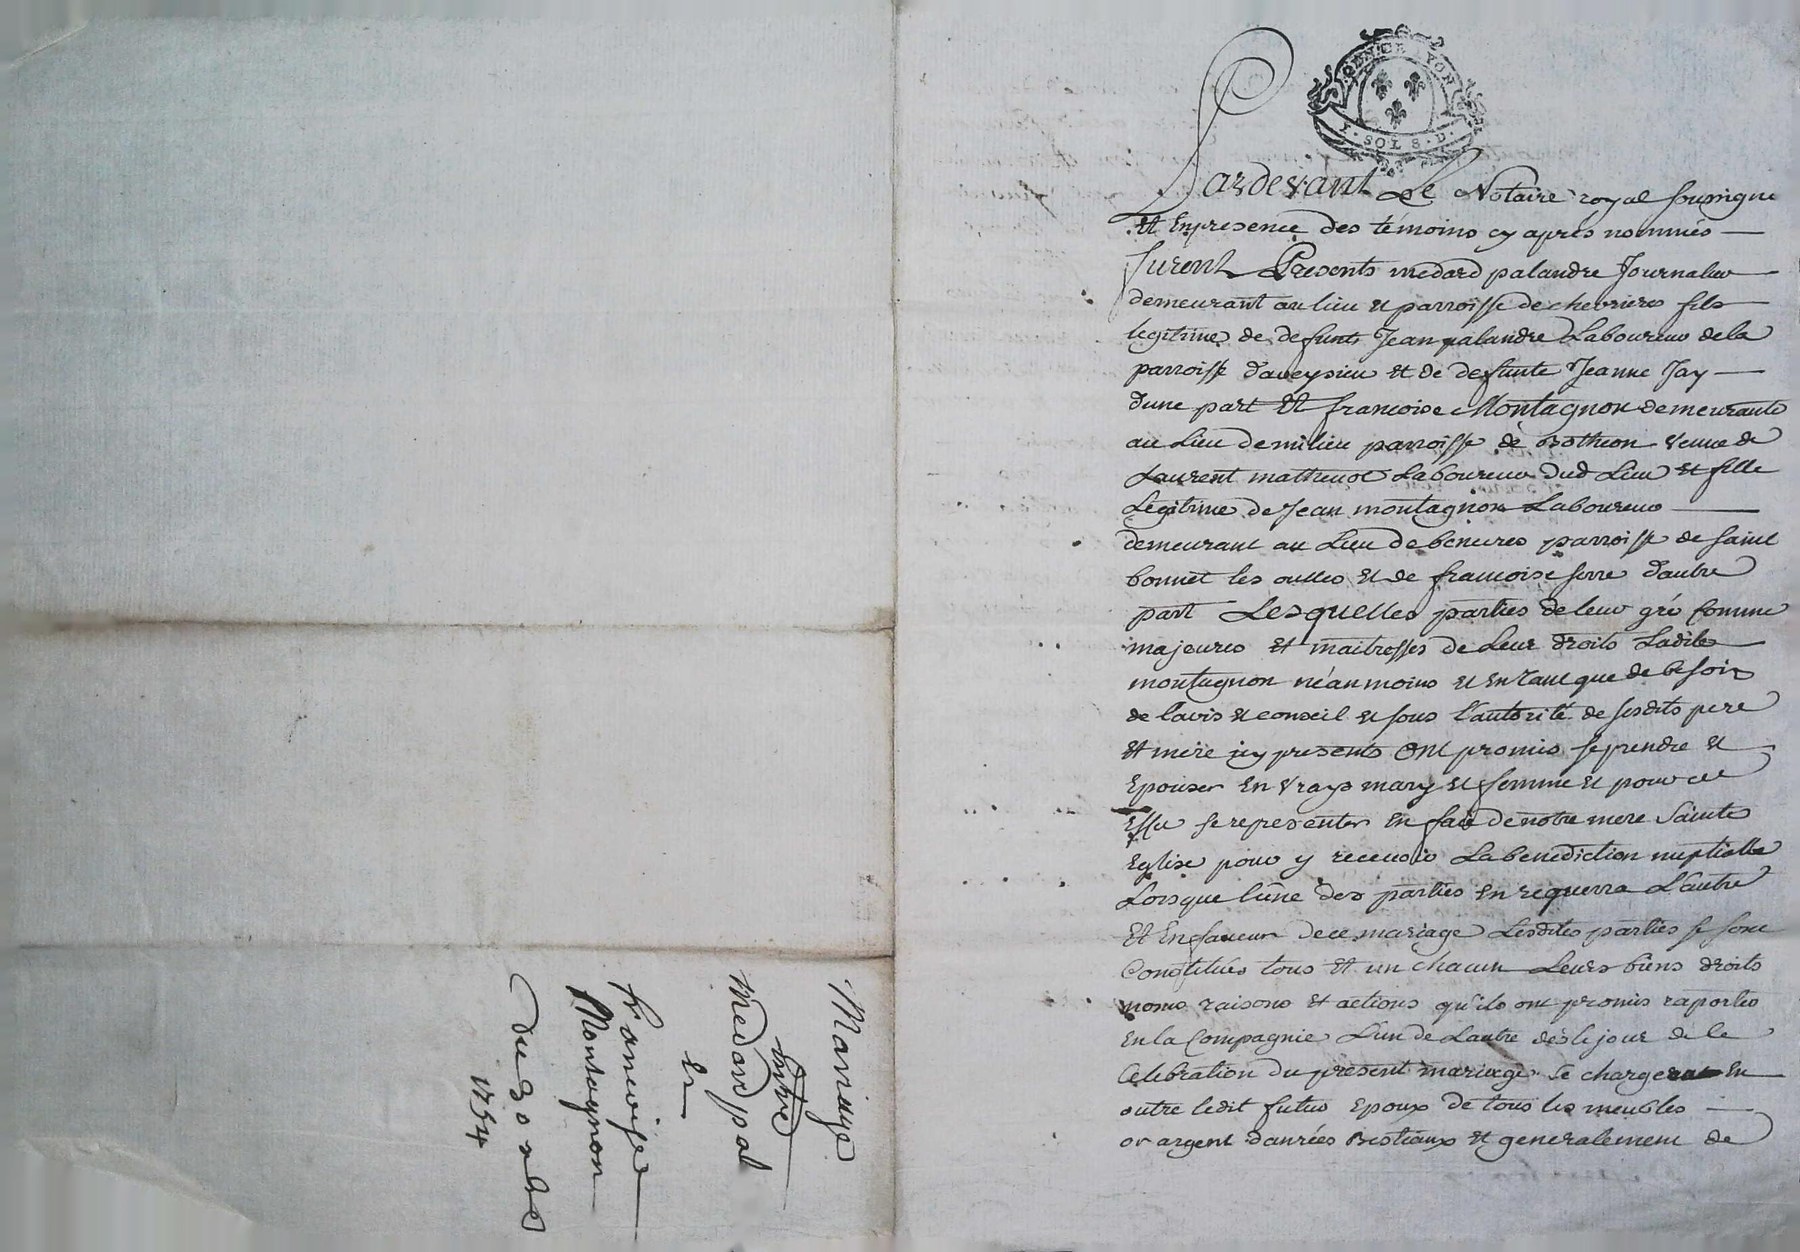 Mariage
entre
Medard pal
Et
francoise
Montagnon
Du 30
1754
GEN. DE LYON
I. SOL 8. D.
Pardevant Le Notaire royal soussigne
Et Enpresence des témoins cy aprés nommés
furent Presents medard palandre Journalier
demeurant au lieu et parroisse de chevrieres fils
legitime de defunts Jean palandre Laboureur dela
parroisse d'aveysieu et de defunte Jeanne Jay
d'une part Et francoise Montagnon demeurante
au Lieu demilieu parroisse de veuve de
Laurent mathevot Laboureur dud Lieu et fille
Legitime de Jean montagnon Laboureur
demeurant au Lieu de parroisse de saint
bonnet les oulles et de francoise serre d'autre
part Lesquelles parties de leur gré comme
majeures et maitresses de Leur droits Ladite
montagnon néanmoins et En tant que de besoin
de lavis et conseil et sous l'autorité de sesdits pere
et mere icy presents Ont promis se prendre et
Epouser En vrays mary et femme et pour cet
Effet se representer En face de notre mere Sainte
Eglise pour y recevoir La benediction nuptialle
Lorsque l'une des parties en requerra L'autre
Et En faveur de ce mariage Lesdites parties se sont
Constitués tous Et un chacun Leurs biens droits
noms raisons et actions qu'ils ont promis raporter
En la Compagnie L'un de Lautre dés le jour de la
Celebration du present mariage. Se charge En
outre ledit futur Epoux de tous les meubles
or argent danrées Bestiaux et generalement de